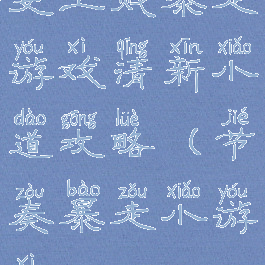 yóu xì qīng xīn xiǎo
游戏清新小
dào gōng lüè jié
道攻略(节
zòu bào zǒu xiǎo yóu
奏暴走小游
xì